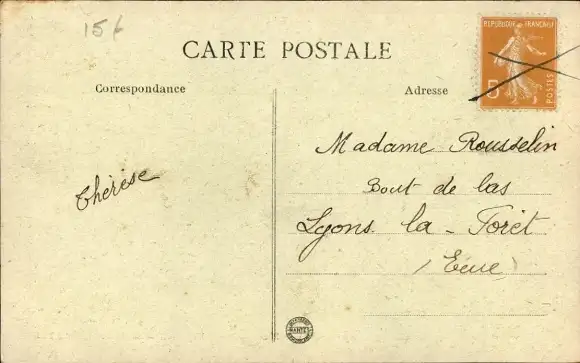 15f
CARTE POSTALE
REPUBLIQUE FRANÇAISE
5
POSTES
Correspondance
Adresse
Thérèse
Madame Rousselin
Bout de bas
Lyons la - Forêt
(Eure)
NANTES